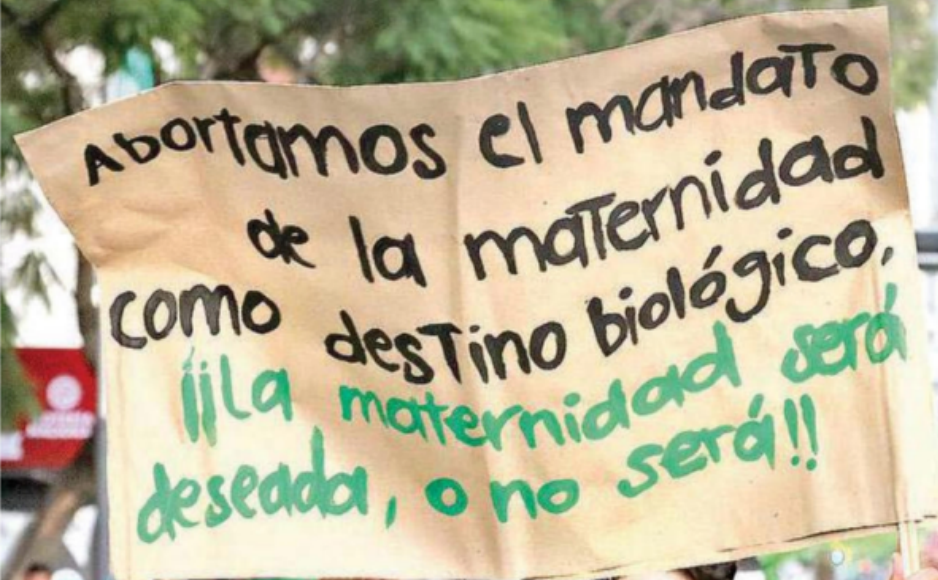 Abortamos el mandato
de la maternidad
como destino biológico,
¡¡La maternidad será
deseada, o no será!!